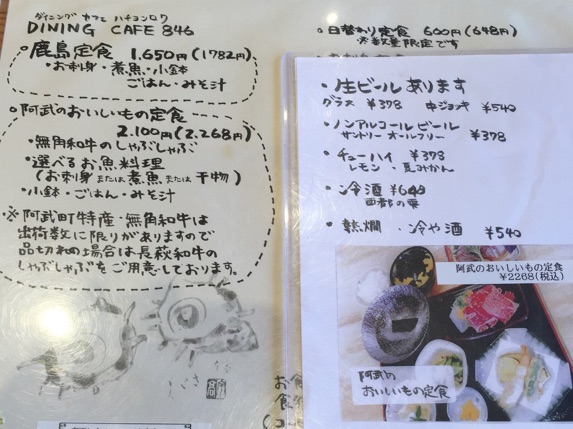 ダイニング カフェ ハチヨンロク
DINING CAFE 846
鹿島定食 1,650円(1782円)
・お刺身・煮魚・小鉢
ごはん・みそ汁
・阿武のおいしいもの定食
2.100円(2.268円)
・無角和牛のしゃぶしゃぶ
・選べるお魚料理
(お刺身または煮魚または干物)
・小鉢・ごはん・みそ汁
※阿武町特産・無角和牛は
出荷数に限りがありますので
品切れの場合は長萩和牛の
しゃぶしゃぶをご用意しております。
・日替わり定食 600円(648円)
※数量限定です
・生ビールあります
グラス ¥378 中ジョッキ ¥540
・ノンアルコールビール
サントリー オールフリー ¥378
・チューハイ ¥378
レモン・夏みかん
・冷酒 ¥648
西都の雫
・熱燗・冷や酒 ¥540
阿武のおいしいもの定食
¥2268(税込)
阿武の
おいしいもの定食
お食